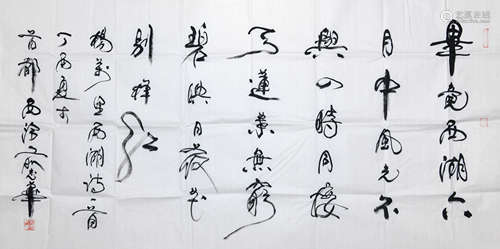 畢竟西湖六
月中風光不
與四時同接
天蓮葉無窮
碧映日荷花
別樣紅
楊萬里西湖詩一首
丁酉夏於
首都